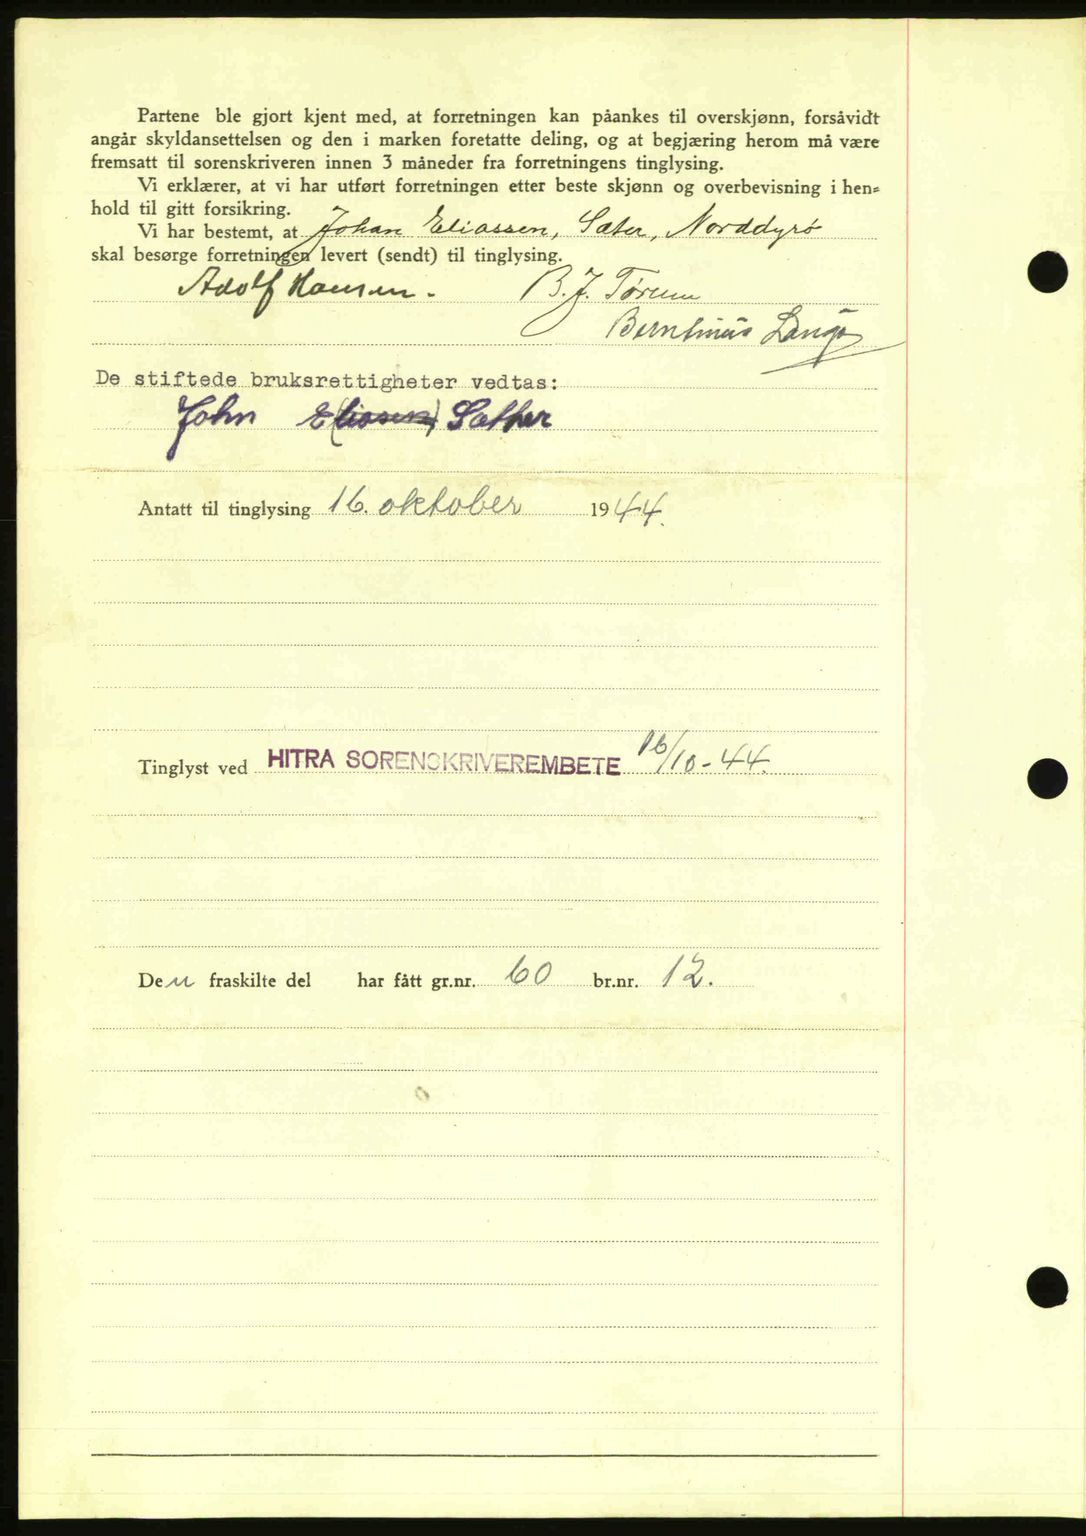 Partene ble gjort kjent med, at forretningen kan påankes til overskjønn, forsåvidt
angår skyldansettelsen og den i marken foretatte deling, og at begjæring herom må være
fremsatt til sorenskriveren innen 3 måneder fra forretningens tinglysing.
Vi erklærer, at vi har utført forretningen etter beste skjønn og overbevisning i hen=
hold til gitt forsikring.
Vi har bestemt, at Johan Eliassen, Sæter, Norddyrø
skal besørge forretningen levert (sendt) til tinglysing.
Adolf Hansen. B. J. Tørum
Berntinus Langø
De stiftede bruksrettigheter vedtas:
John E(liasen) Sæther
Antatt til tinglysing 16. oktober 1944.
Tinglyst ved HITRA SORENSKRIVEREMBETE 16/10-44.
Den fraskilte del har fått gr.nr. 60 br.nr. 12.